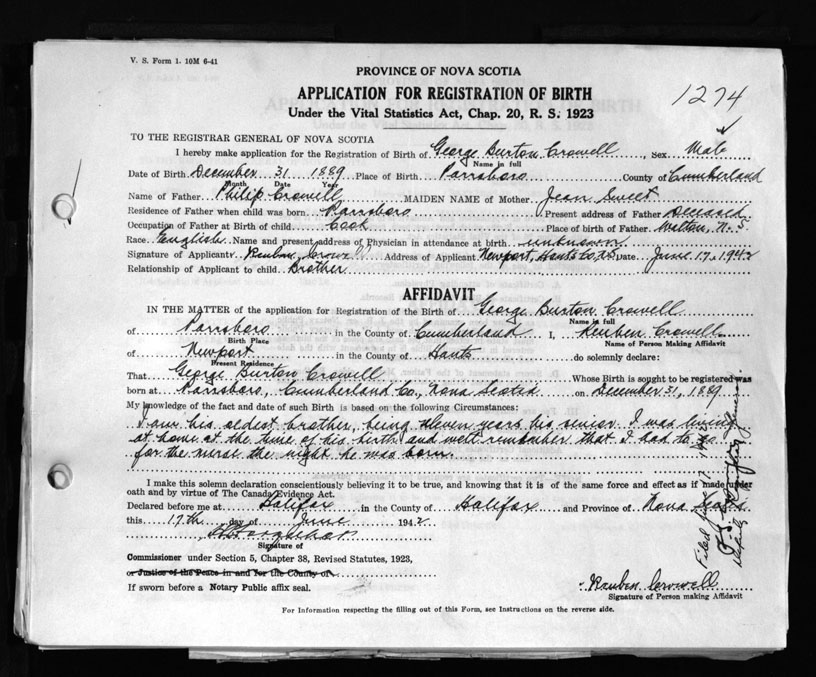 V. S. Form 1. 10M 6-41
PROVINCE OF NOVA SCOTIA
APPLICATION FOR REGISTRATION OF BIRTH
Under the Vital Statistics Act, Chap. 20, R. S. 1923
1274
TO THE REGISTRAR GENERAL OF NOVA SCOTIA
I hereby make application for the Registration of Birth of George Burton Crowell, Sex Male
Name in full
Date of Birth December 31 1889 Place of Birth Parrsboro County of Cumberland
Month Date Year
Name of Father Philip Crowell MAIDEN NAME of Mother Jean Sweet
Residence of Father when child was born Parrsboro Present address of Father Deceased
Occupation of Father at Birth of child Cook Place of birth of Father Wilton, N. S.
Race English Name and present address of Physician in attendance at birth unknown
Signature of Applicant Reuben Crowell Address of Applicant Newport, Hants Co NS Date June 17, 1942
Relationship of Applicant to child Brother
AFFIDAVIT
IN THE MATTER of the application for Registration of the Birth of George Burton Crowell
Name in full
of Parrsboro in the County of Cumberland I, Reuben Crowell
Birth Place Name of Person Making Affidavit
of Newport in the County of Hants do solemnly declare:
Present Residence
That George Burton Crowell Whose Birth is sought to be registered was
born at Parrsboro, Cumberland Co., Nova Scotia on December 31, 1889
My knowledge of the fact and date of such Birth is based on the following Circumstances:
I am his oldest brother, being eleven years his senior. I was living
at home at the time of his birth and well remember that I had to go
for the nurse the night he was born.
I make this solemn declaration conscientiously believing it to be true, and knowing that it is of the same force and effect as if made under
oath and by virtue of The Canada Evidence Act.
Declared before me at Halifax in the County of Halifax and Province of Nova Scotia
this 17th day of June 1942
Signature of
Commissioner under Section 5, Chapter 38, Revised Statutes, 1923,
or Justice of the Peace in and for the County of
If sworn before a Notary Public affix seal.
Reuben Crowell
Signature of Person making Affidavit
For Information respecting the filling out of this Form, see Instructions on the reverse side.
Filed